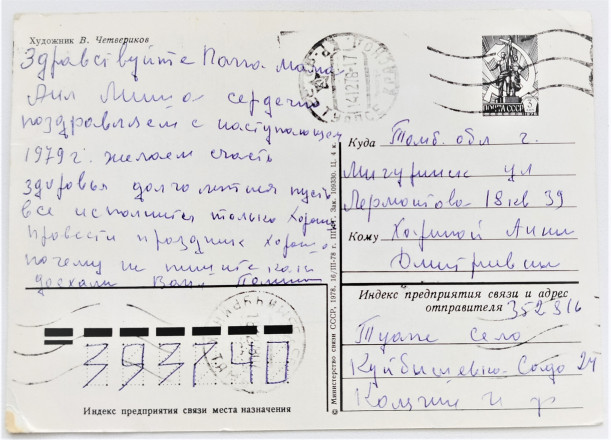 Художник В. Четвериков
Здравствуйте Папа мама
Аня Миша сердечно
поздравляем с наступающем
1979 г. желаем счасть
здоровья долголетия пусть
все исполнится только хорош
провести праздник хорошо
почему не пишите как
доехали Ваня
ПОЧТА СССР
Куда Тамб. обл г.
Мичуринск ул
Лермонтова 18 кв 39
Кому Анни
Дмитривни
Индекс предприятия связи и адрес
отправителя 352816
Туапс село
Куйбышевка 24
393740
Индекс предприятия связи места назначения
© Министерство связи СССР, 1978. 16/III-78 г. Зак. 109330. Ц. 4 к.